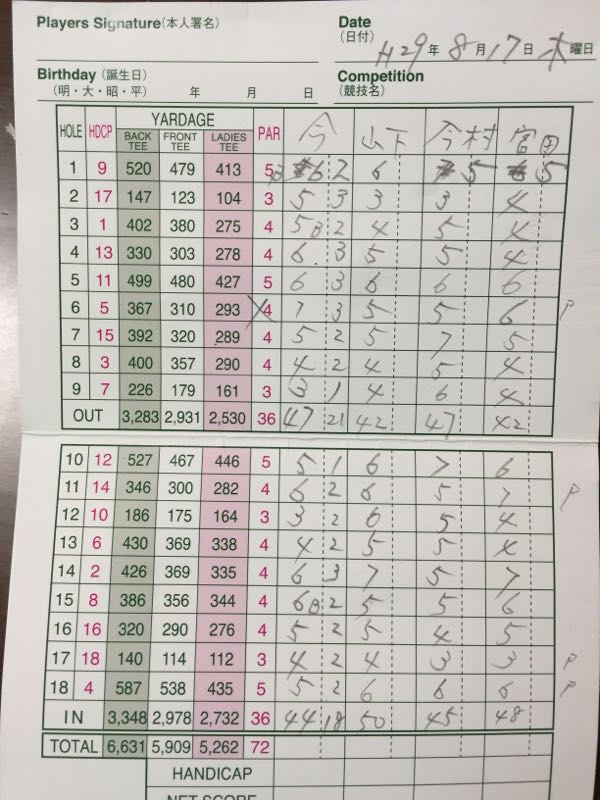 Players Signature(本人署名)
Date
(日付)
H29年 8月17日 木曜日
Birthday(誕生日)
(明・大・昭・平) 年 月 日
Competition
(競技名)
HOLE HDCP YARDAGE PAR 今 山下 今村 宮田
BACK TEE FRONT TEE LADIES TEE
1 9 520 479 413 5 6 2 6 5 5
2 17 147 123 104 3 5 3 3 3 4
3 1 402 380 275 4 5 B 2 4 5 4
4 13 330 303 278 4 6 3 5 5 4
5 11 499 480 427 5 6 3 6 6 6
6 5 367 310 293 4 7 3 5 5 6 P
7 15 392 320 289 4 5 2 5 7 5
8 3 400 357 290 4 4 2 4 5 4
9 7 226 179 161 3 3 1 4 6 4
OUT 3,283 2,931 2,530 36 47 21 42 47 42
10 12 527 467 446 5 5 1 6 7 6
11 14 346 300 282 4 6 2 6 5 7 P
12 10 186 175 164 3 3 2 6 5 4
13 6 430 369 338 4 4 2 5 5 4
14 2 426 369 335 4 6 3 7 5 7
15 8 386 356 344 4 6 B 2 5 5 6
16 16 320 290 276 4 5 2 5 4 5
17 18 140 114 112 3 4 2 4 3 3 P
18 4 587 538 435 5 5 2 6 6 6 P
IN 3,348 2,978 2,732 36 44 18 50 45 48
TOTAL 6,631 5,909 5,262 72
HANDICAP
NET SCORE